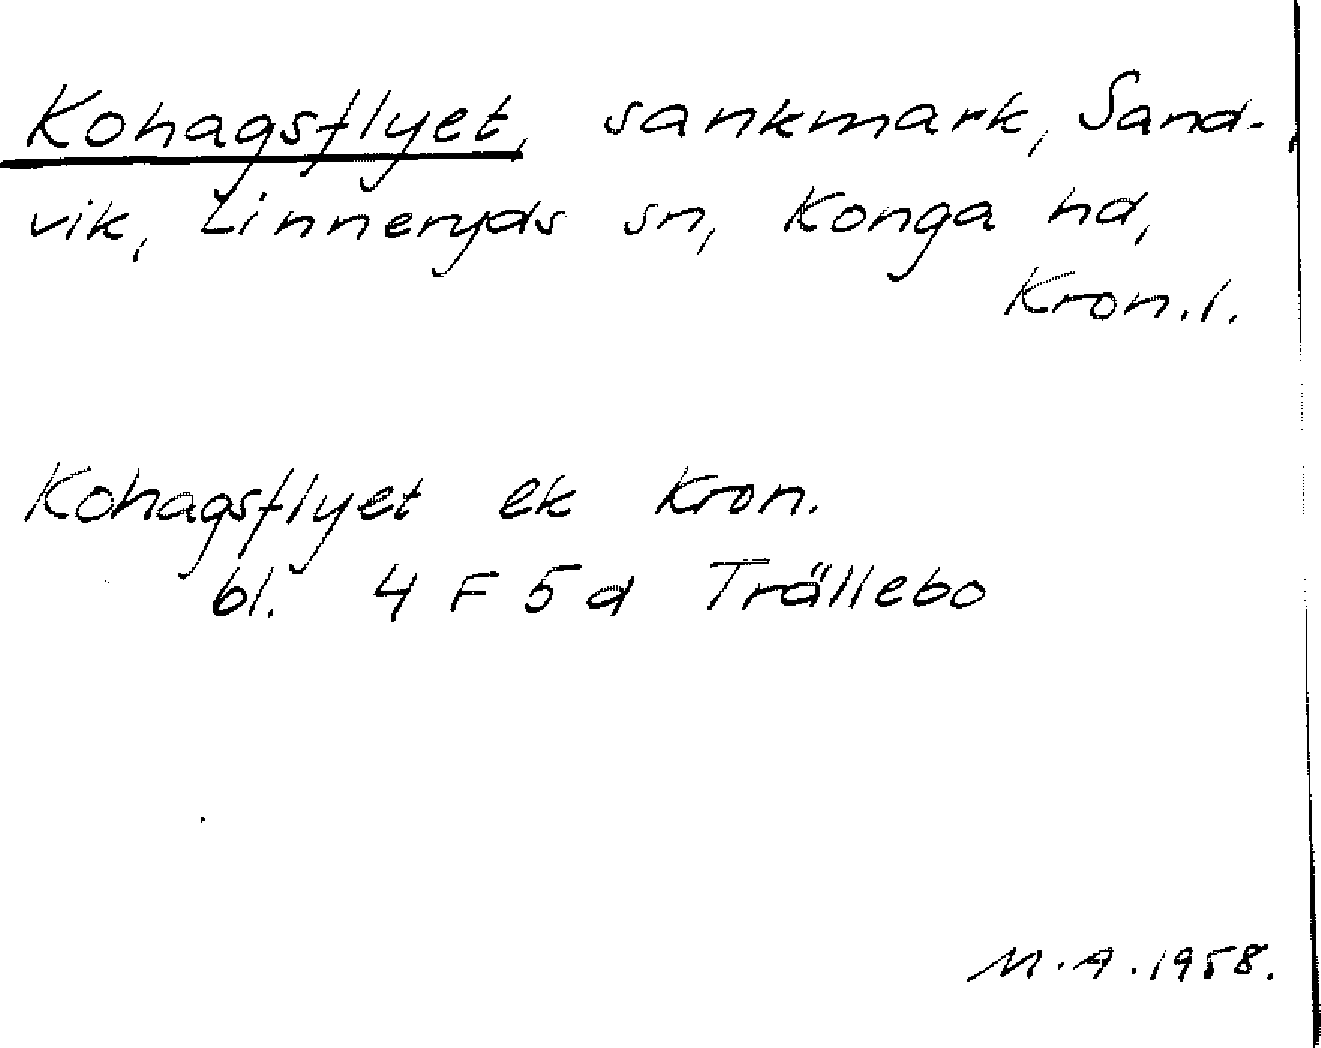 Kohagsflyet, sankmark, Sand-
vik, Linneryds sn, Konga hd,
Kron.l.
Kohagsflyet ek Kron.
bl. 4 F 5 d Trällebo
M.A.1958.